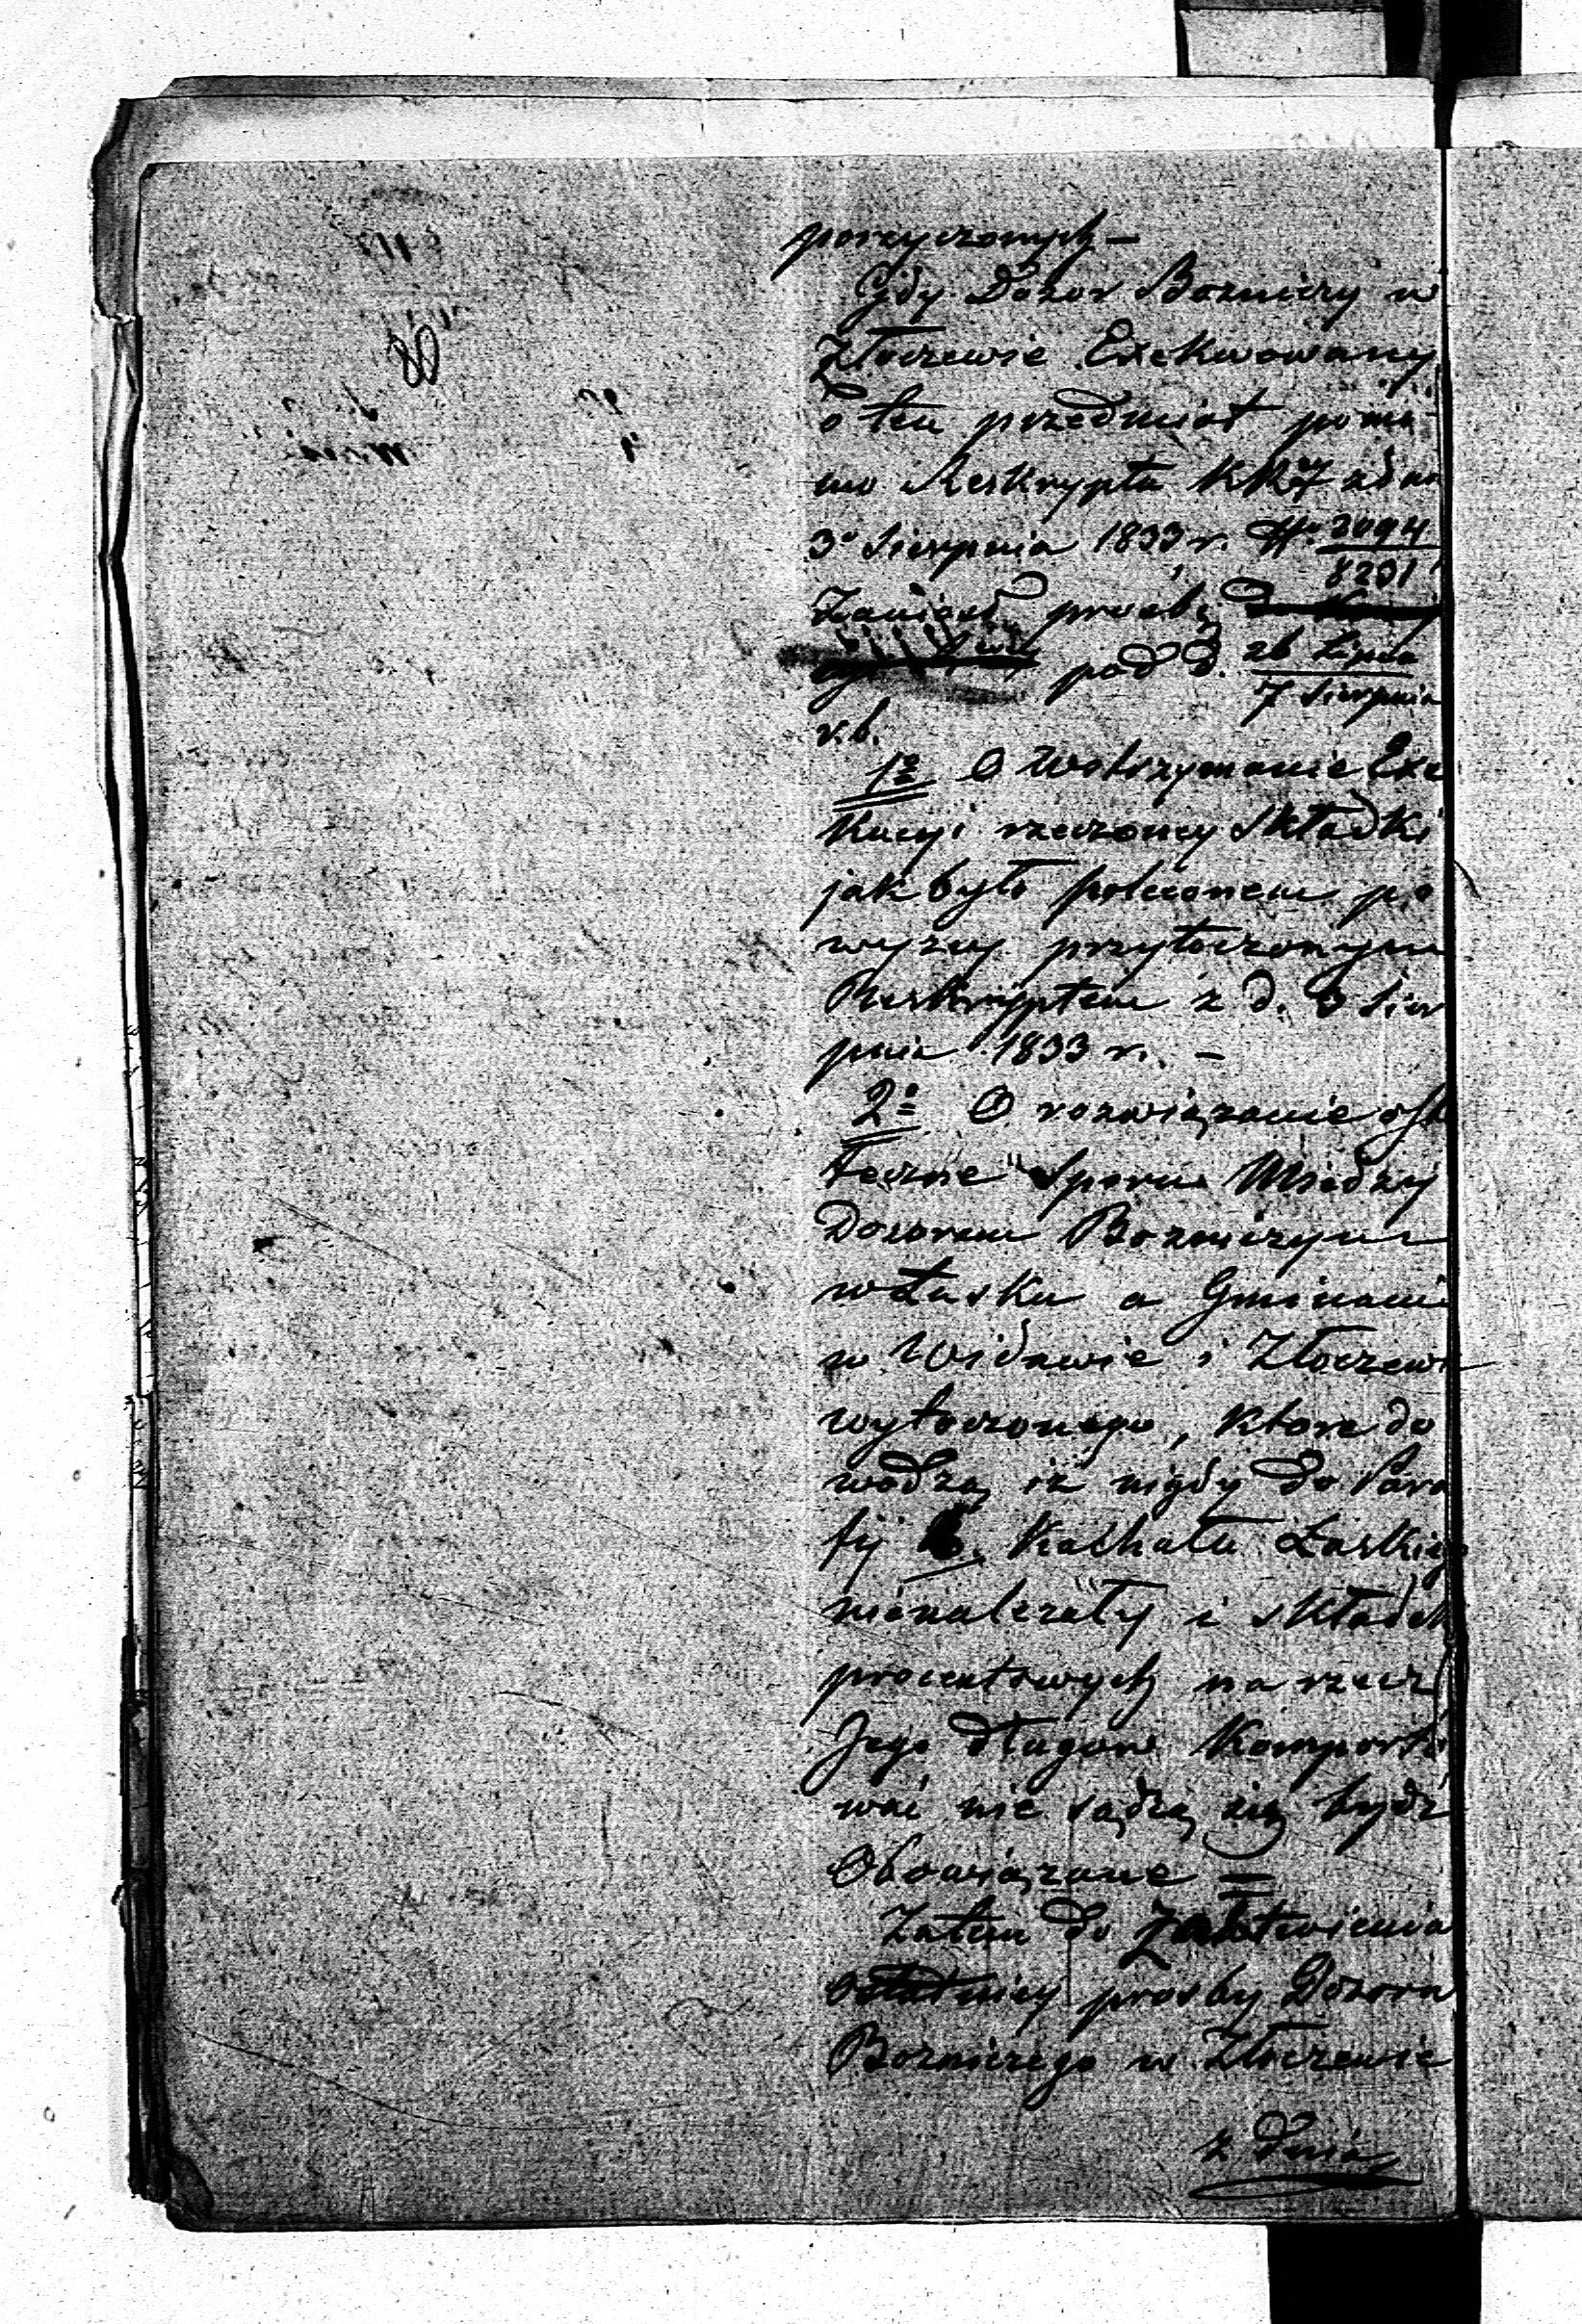 pożyczonych —
Gdy Dozor Bozniczy w
Złoczewie Exekwowany
o ten przedmiot pomi-
mo Reskryptu KR
3º Sierpnia 1833 r. № 3094/8231
Zaniosł prosbę
pod d. 26 Lipca/7 Sierpnia
r. b.
1º O Wstrzymanie Exe
kucyi rzeczoney Składki
jak było poleconem po
wyzey przytoczonym
Reskryptem z d. 3 Sier
pnia 1833 r. —
2º O rozwiązanie osta
teczne Sporu Między
Dozorem Bozniczym
w Łasku a Gminami
w Widawie i Złoczewie
wytoczonego, ktore do
wodzą iż nigdy do Para
fij b. Kachału Łaskiego
nienalezały i składek
procentowych na rzecz
Jego długow Komporto
wać nie sądzą się bydź
Obowiązane =
Zatem do Załatwienia
ostatniey prosby Dozoru
Bozniczego w Złoczewie
z dnia